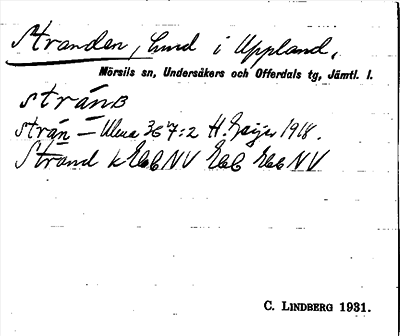 Stranden, lund i Uppland,
Mörsils sn, Undersåkers och Offerdals tg, Jämtl. l.
stränB
strän – Ulma 367:2 H. Geijer 1918.
Strand k EkbNV Ekb EkbNV
C. LINDBERG 1931.